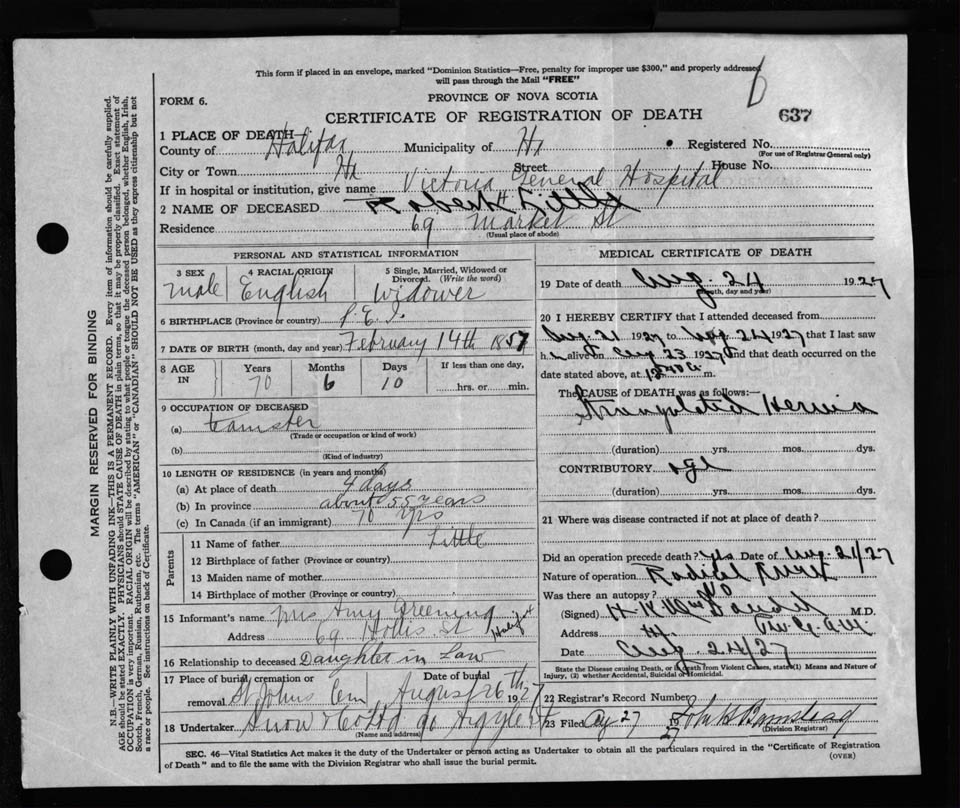 This form if placed in an envelope, marked "Dominion Statistics—Free, penalty for improper use $300," and properly addressed
will pass through the Mail "FREE"
FORM 6.
PROVINCE OF NOVA SCOTIA
CERTIFICATE OF REGISTRATION OF DEATH
637
1 PLACE OF DEATH
County of Halifax Municipality of Hx Registered No.
(For use of Registrar General only)
City or Town Hx Street House No.
If in hospital or institution, give name Victoria General Hospital
2 NAME OF DECEASED Robert H Little
Residence 69 Market St
(Usual place of abode)
PERSONAL AND STATISTICAL INFORMATION
3 SEX 4 RACIAL ORIGIN 5 Single, Married, Widowed or Divorced. (Write the word)
male English Widower
6 BIRTHPLACE (Province or country) P.E.I.
7 DATE OF BIRTH (month, day and year) February 14th 1857
8 AGE IN Years Months Days If less than one day,
70 6 10 hrs. or min.
9 OCCUPATION OF DECEASED
(a) teamster
(Trade or occupation or kind of work)
(b)
(Kind of industry)
10 LENGTH OF RESIDENCE (in years and months)
(a) At place of death 4 days
(b) In province about 55 years
(c) In Canada (if an immigrant) 70 yrs
Parents
11 Name of father Little
12 Birthplace of father (Province or country)
13 Maiden name of mother
14 Birthplace of mother (Province or country)
15 Informant's name Mrs Amy Greening
Address 69 Hollis St Halifax
16 Relationship to deceased Daughter in Law
17 Place of burial, cremation or removal Date of burial
St Johns Cem August 26th 1927
18 Undertaker Snow & Co Ltd 90 Argyle St
(Name and address)
MEDICAL CERTIFICATE OF DEATH
19 Date of death Aug. 24 1927
(Month, day and year)
20 I HEREBY CERTIFY that I attended deceased from
Aug. 21 1927 to Aug 24 1927 that I last saw
h alive on Aug 23 1927 and that death occurred on the
date stated above, at m.
The CAUSE of DEATH was as follows:
Strangulated Hernia
(duration) yrs. mos. dys.
CONTRIBUTORY age
(duration) yrs. mos. dys.
21 Where was disease contracted if not at place of death?
Did an operation precede death? Yes Date of Aug 21/27
Nature of operation Radical Cure
Was there an autopsy? No
(Signed) H K M.D.
Address
Date Aug. 24/27
State the Disease causing Death, or in death from Violent Causes, state (1) Means and Nature of
Injury, (2) whether Accidental, Suicidal or Homicidal.
22 Registrar's Record Number
23 Filed Aug 27 1927 John
(Division Registrar)
SEC. 46—Vital Statistics Act makes it the duty of the Undertaker or person acting as Undertaker to obtain all the particulars required in the "Certificate of Registration
of Death" and to file the same with the Division Registrar who shall issue the burial permit.
(OVER)
MARGIN RESERVED FOR BINDING
N.B.—WRITE PLAINLY WITH UNFADING INK—THIS IS A PERMANENT RECORD. Every item of information should be carefully supplied.
AGE should be stated EXACTLY. PHYSICIANS should STATE CAUSE OF DEATH in plain terms, so that it may be properly classified. Exact statement of
OCCUPATION is very important. RACIAL ORIGIN will be described by stating to what people or tongue the deceased person belonged, whether English, Irish,
Scotch, French, German, Russian, Ruthenian, etc. The terms "AMERICAN" or "CANADIAN" SHOULD NOT BE USED as they express citizenship but not
a race or people. See instructions on back of Certificate.